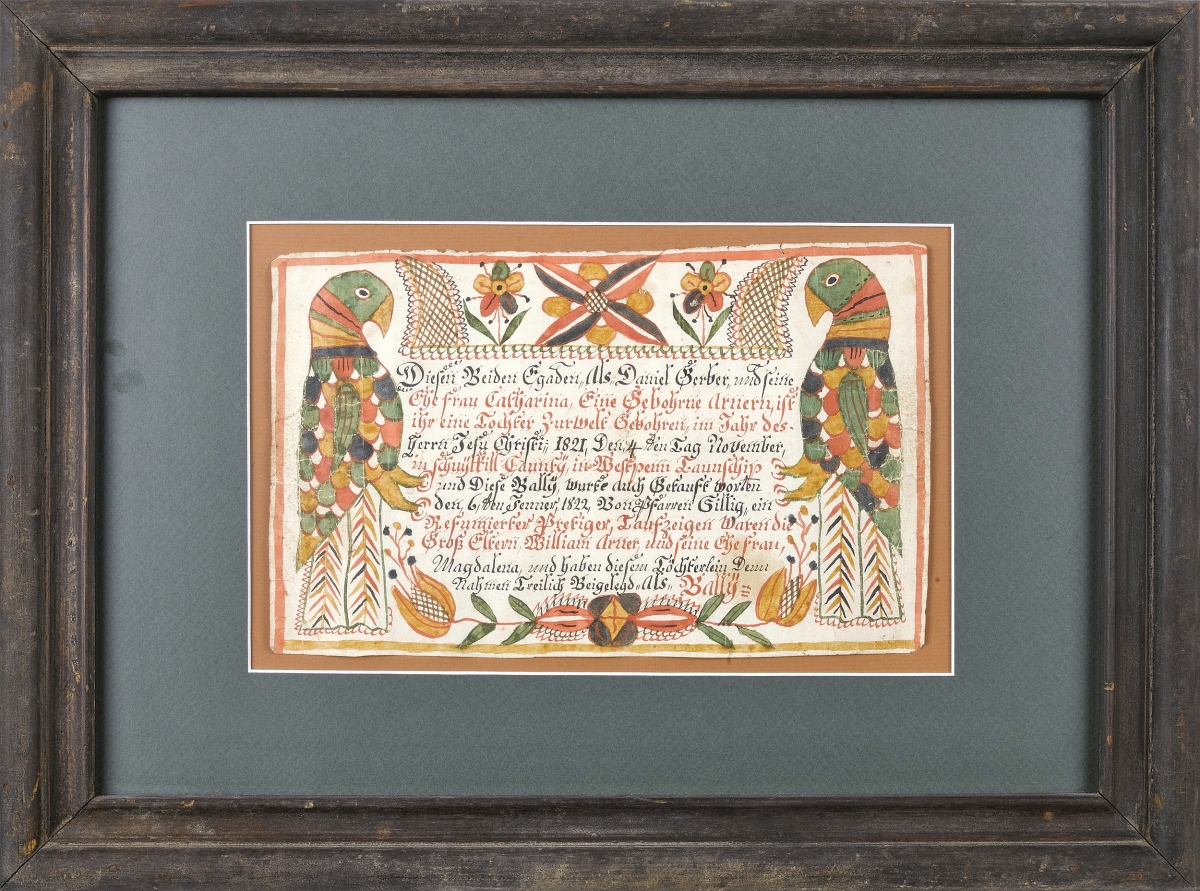 Diesen Beiden Egaden, Als, Daniel Gerber, und seine
Ehe frau Catharina, Eine Gebohrne Arnern, ist
ihr eine Tochter Zurwelt Gebohren, im Jahr des-
Herrn Jesu Christi, 1821, Den 4 ten Tag November,
in schuylkill Caunty, in Westpenn Taunschip
und Diese Bally, wurte auch Getauft worten
den, 6, ten Jenner, 1822, Von Pfarren Sillig, ein
Refurmierter Pretiger, Taufzeigen waren die
Groß Eltern, William Arner, und seine Ehe frau,
Magdalena, und haben diesem Töchterlein Denn
Nahmen Treilich Beigelegd, Als, Bally=